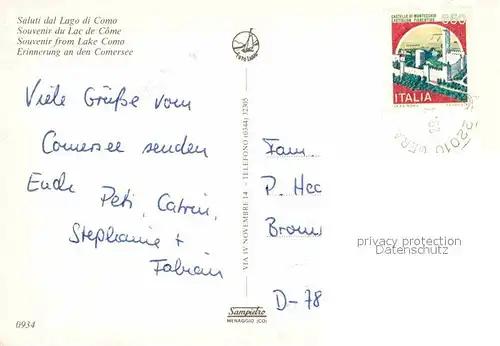 Saluti dal Lago di Como
Souvenir du Lac de Côme
Souvenir from Lake Como
Erinnerung an den Comersee
Foto Lario
CASTELLO DI MONTECCHIO
CASTIGLION FIORENTINO
650
ITALIA
22010
Viele Grüße vom
Comersee senden
Euch Peti, Catrin,
Stephanie +
Fabian
VIA IV NOVEMBRE 14 - TELEFONO (0344) 32305
Fam.
P. Hec
Brow
D-78
privacy protection
Datenschutz
Sampietro
MENAGGIO (CO)
0934